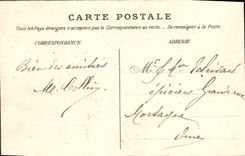 CARTE POSTALE
Tous les Pays étrangers n'acceptent pas la Correspondance au recto. Se renseigner à la Poste.
CORRESPONDANCE
ADRESSE
Bien des amitiés
épiciers Grande rue
Mortagne
Orne